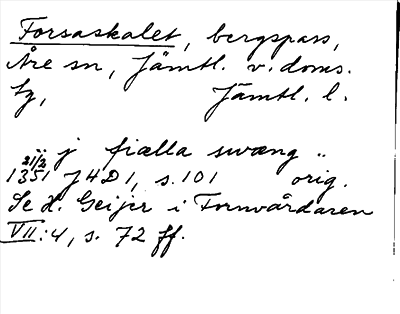 Forsaskalet, bergspass,
Åre sn, Jämtl. v. doms.
tg, Jämtl. l.
" j fiælla swæng "
21/2
1351 J4D1, s. 101 orig.
Se H. Geijer i Fornvårdaren
VII:4, s. 72 ff.